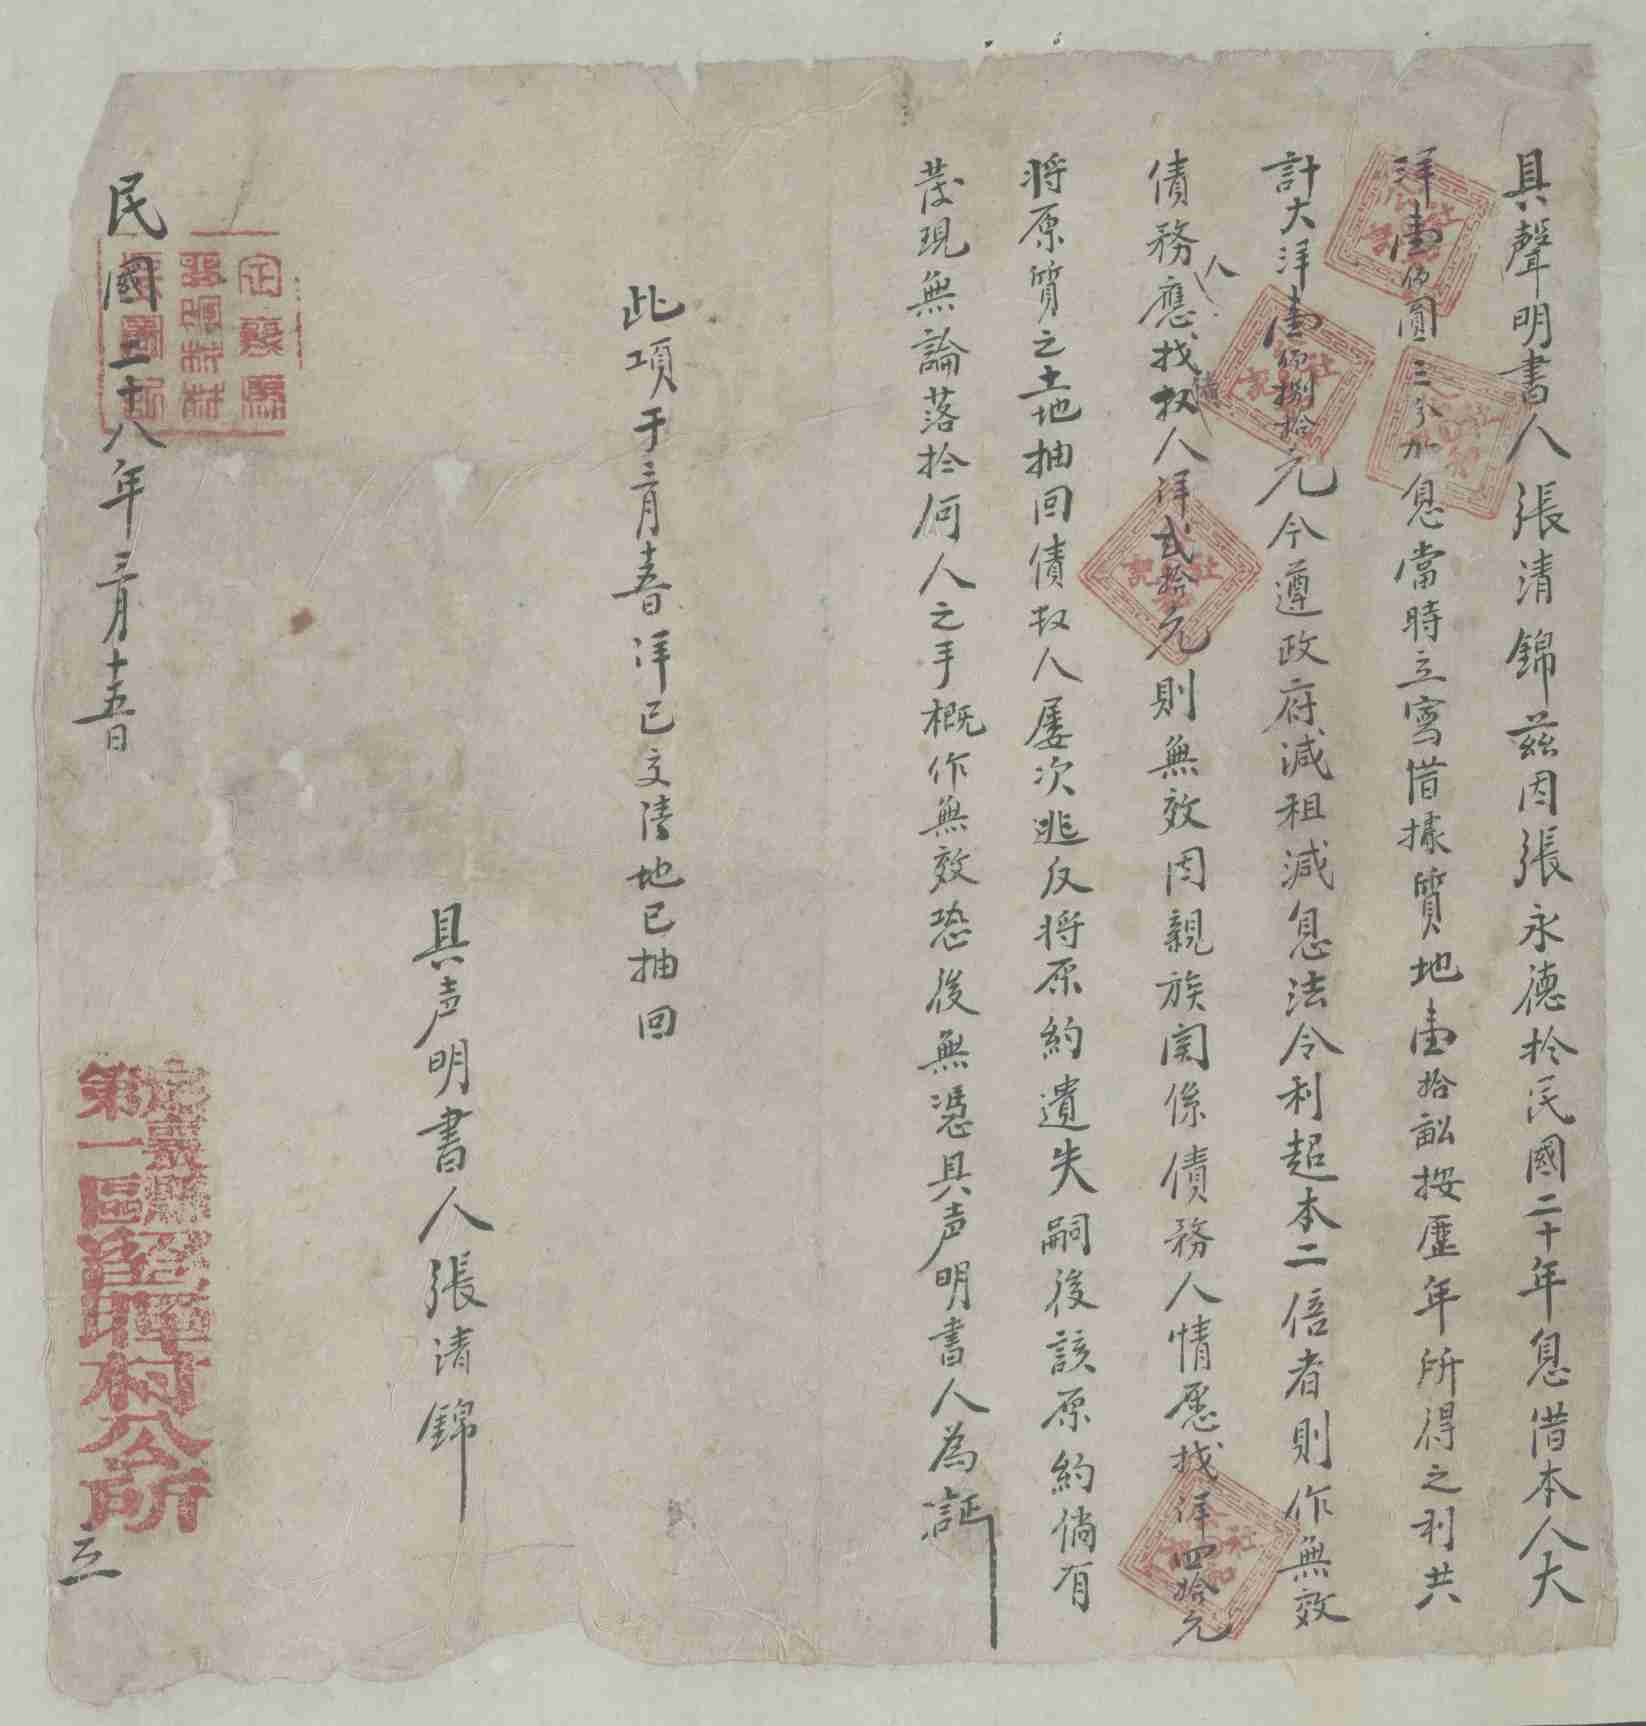 具聲明書人張清錦茲因張永德扵民國二十年息借本人大
洋壹佰圓三分加息當時立寫借據質地壹拾畝按歷年所得之利共
計大洋壹佰捌拾元今遵政府減租減息法令利超本二倍者則作無效
債務人應找債权人洋弍拾元則無效因親族関係債務人情愿找洋四拾元
将原質之土地抽回債权人屡次逃反将原約遺失嗣後該原約倘有
發現無論落扵何人之手概作無效恐後無憑具声明書人為証
此項于三月十五日洋已交清地已抽回
具声明書人張清錦
民國三十八年三月十五日
定襄縣
第一區
村公所
立